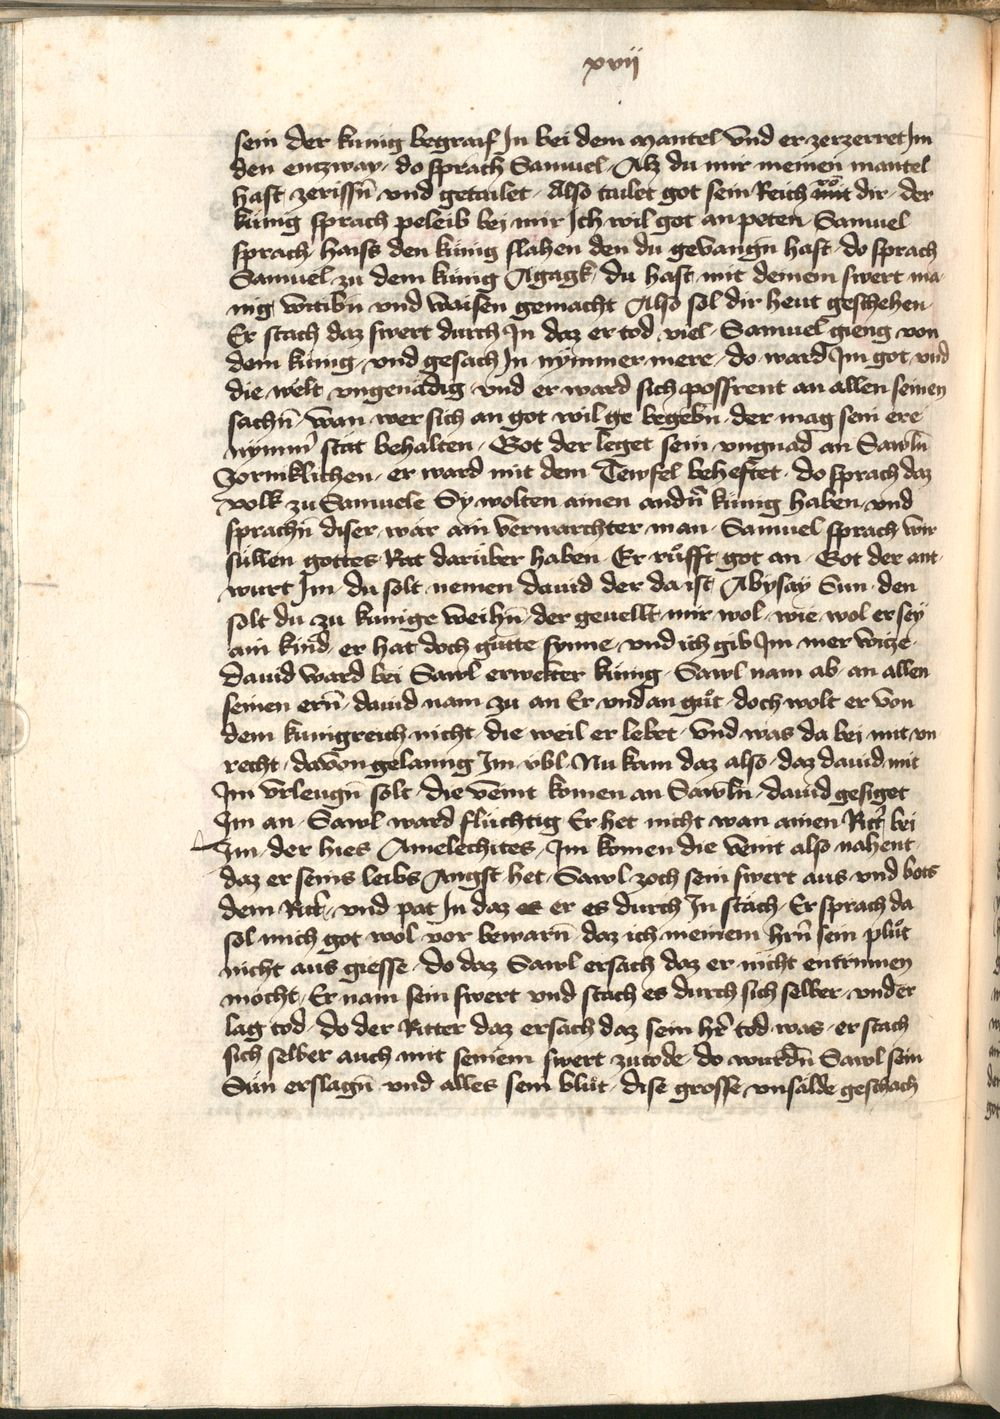 xvij
sein der kunig begraif In bei dem mantel vnd er zerzerret Im
den entzway · do sprach Samuel · Alz du mir meinen mantel
hast zerissn̄ vnd getailet · Also tailet got sein Reich mit dir · der
künig sprach peleib bei mir Ich wil got an peten · Samuel
sprach haiss den künig slahen den du gevangn hast · do sprach
Samuel zu dem künig Agagk · du hast mit deinem swert ma-
nig witibn vnd waisen gemacht Also sol dir heut geschehen ·
Er stach daz swert durch In daz er tod viel · Samuel gieng von
dem künig vnd gesach In nymmer mere · do ward Im got vnd
die welt vngenädig vnd er ward sich possrent an allen seinen
sachn̄ wan wer sich an got wil ge begebn · der mag sein ere
nymm̄ stät behalten · Got der leget sein vngnad an Sawln̄
Zorniklichen · er ward mit dem Tewfel beheftet · do sprach daz
volk zu Samuele Sy wolten ainen andn̄ künig haben vnd
sprachn̄ diser wär ain verwarchter man · Samuel sprach wir
süllen gottes Rat darüber haben · Er rüfft got an · Got der ant-
wurt Im · du solt nemen dauid der da ist Abysay Sun · den
solt du zu kunige weihn̄ · der geuellt mir wol · wie wol er sey
ain kind er hat doch gutte synne · vnd ich gib Im mer witze ·
dauid ward bei Sawl erwelter künig · Sawl nam ab an allen
seinen ern̄ · dauid nam zu an Er vnd an gut · doch wolt er von
dem kunigreich nicht · die weil er lebet · vnd was da bei mit vn
recht · davon gelanng Im vbl · Nu kam daz also · daz dauid mit
Im vrleugn solt · die veint komen an Sawln · dauid gesiget
Im an · Sawl ward flüchtig Er het nicht wan ainen Ritt̄ bei
Im · der hies Amelechites · Im komen die veint also nahent
daz er seins leibs Angst het · Sawl zoch sein swert aus vnd bots
dem Ritt̄ · vnd pat In daz er es durch In stäch · Er sprach da
sol mich got wol vor bewarn̄ daz ich meinem hrn̄ sein plut
nicht aus giesse · do daz Sawl ersach daz er nicht entrinnen
mocht · Er nam sein swert vnd stach es durch sich selber · vnd er
lag tod · do der Ritter daz ersach daz sein hr̄ tod was · er stach
sich selber auch mit seinem swert zu tode · do wurdn̄ Sawl sein
Sün erslagn̄ vnd alles sein blüt · dise grosse vnsälde geschach